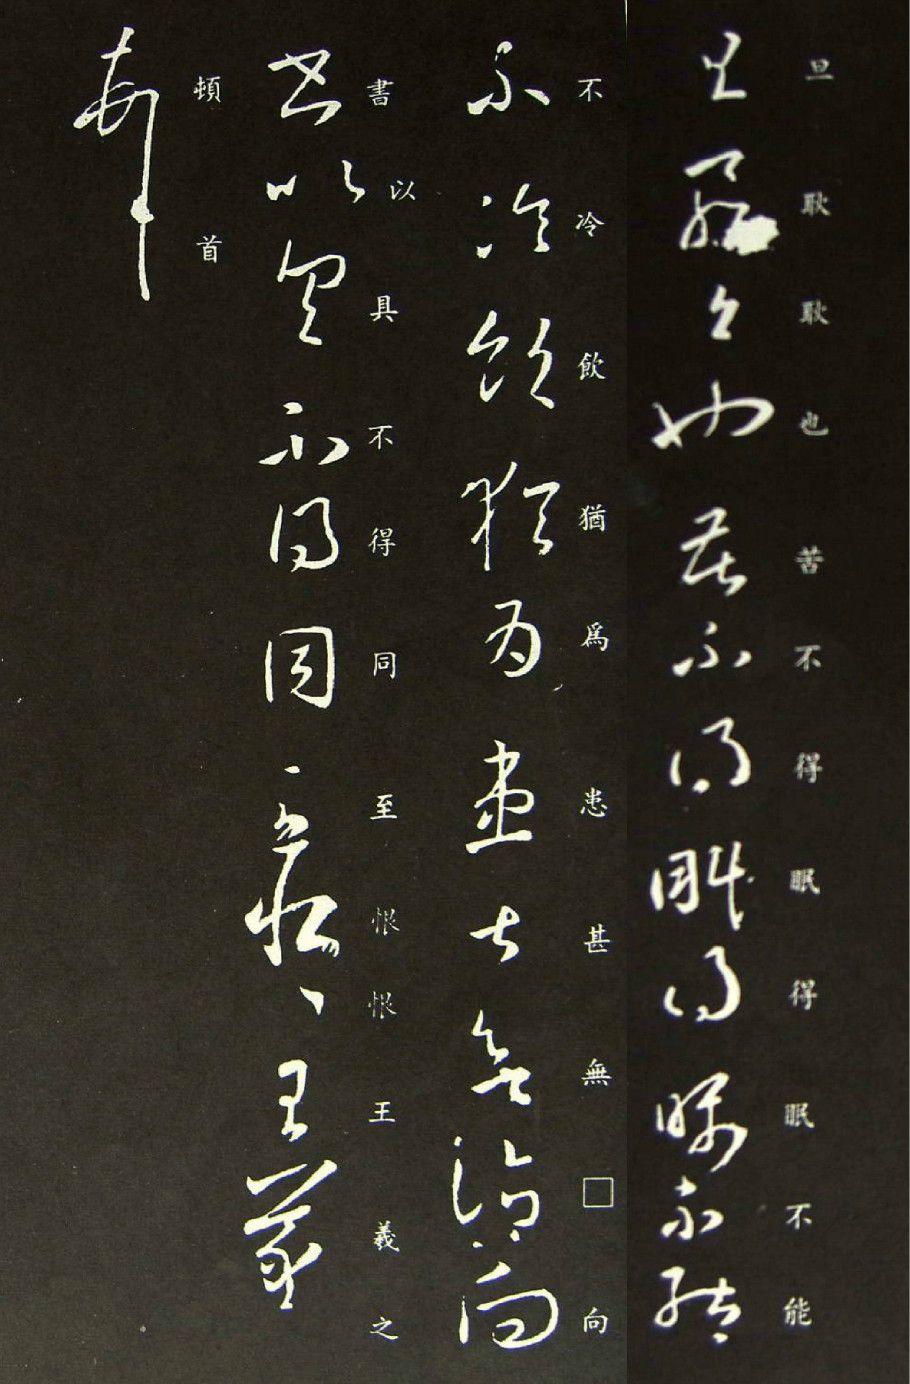 旦耿耿也苦不得眠得眠不能
不冷飲猶為患甚無□向
書以具不得同至恨恨王羲之
頓首